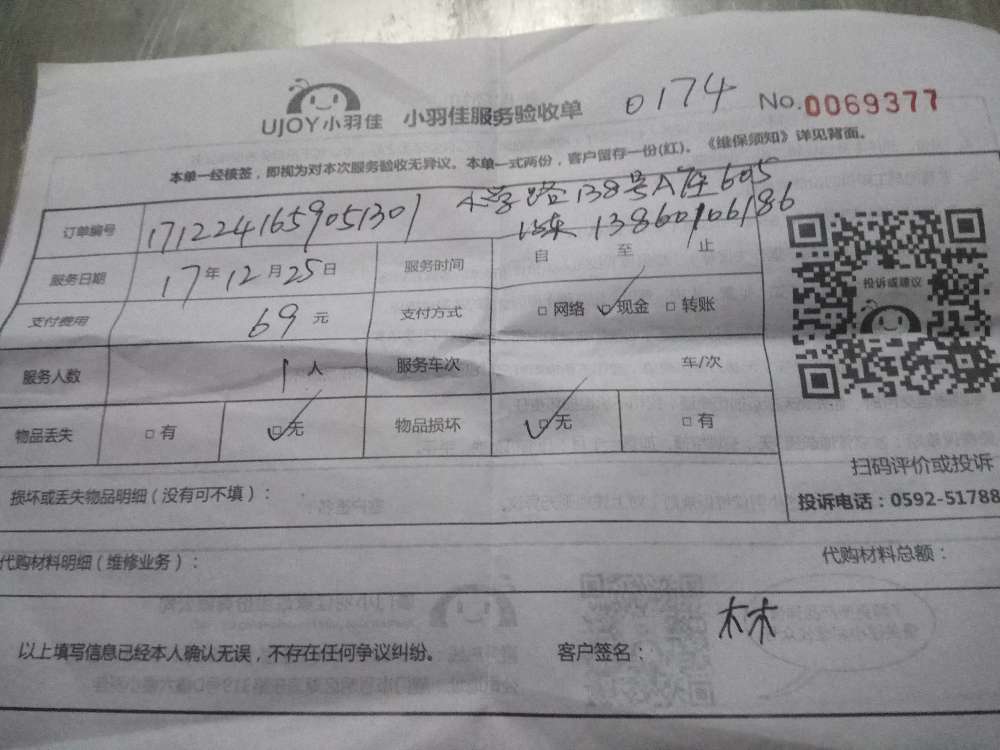 UJOY小羽佳 小羽佳服务验收单 0174 No.0069377
本单一经核签，即视为对本次服务验收无异议。本单一式两份，客户留存一份(红)。《维保须知》详见背面。
小学路138号A座605
订单编号 1712241659051301 13860106186
服务日期 17年12月25日 服务时间 自 至 止
支付费用 69元 支付方式 □网络 ☑现金 □转账
投诉或建议
服务人数 1人 服务车次 车/次
物品丢失 □有 ☑无 物品损坏 ☑无 □有
扫码评价或投诉
损坏或丢失物品明细（没有可不填）：
投诉电话：0592-51788
代购材料明细（维修业务）： 代购材料总额：
以上填写信息已经本人确认无误，不存在任何争议纠纷。 客户签名： 林